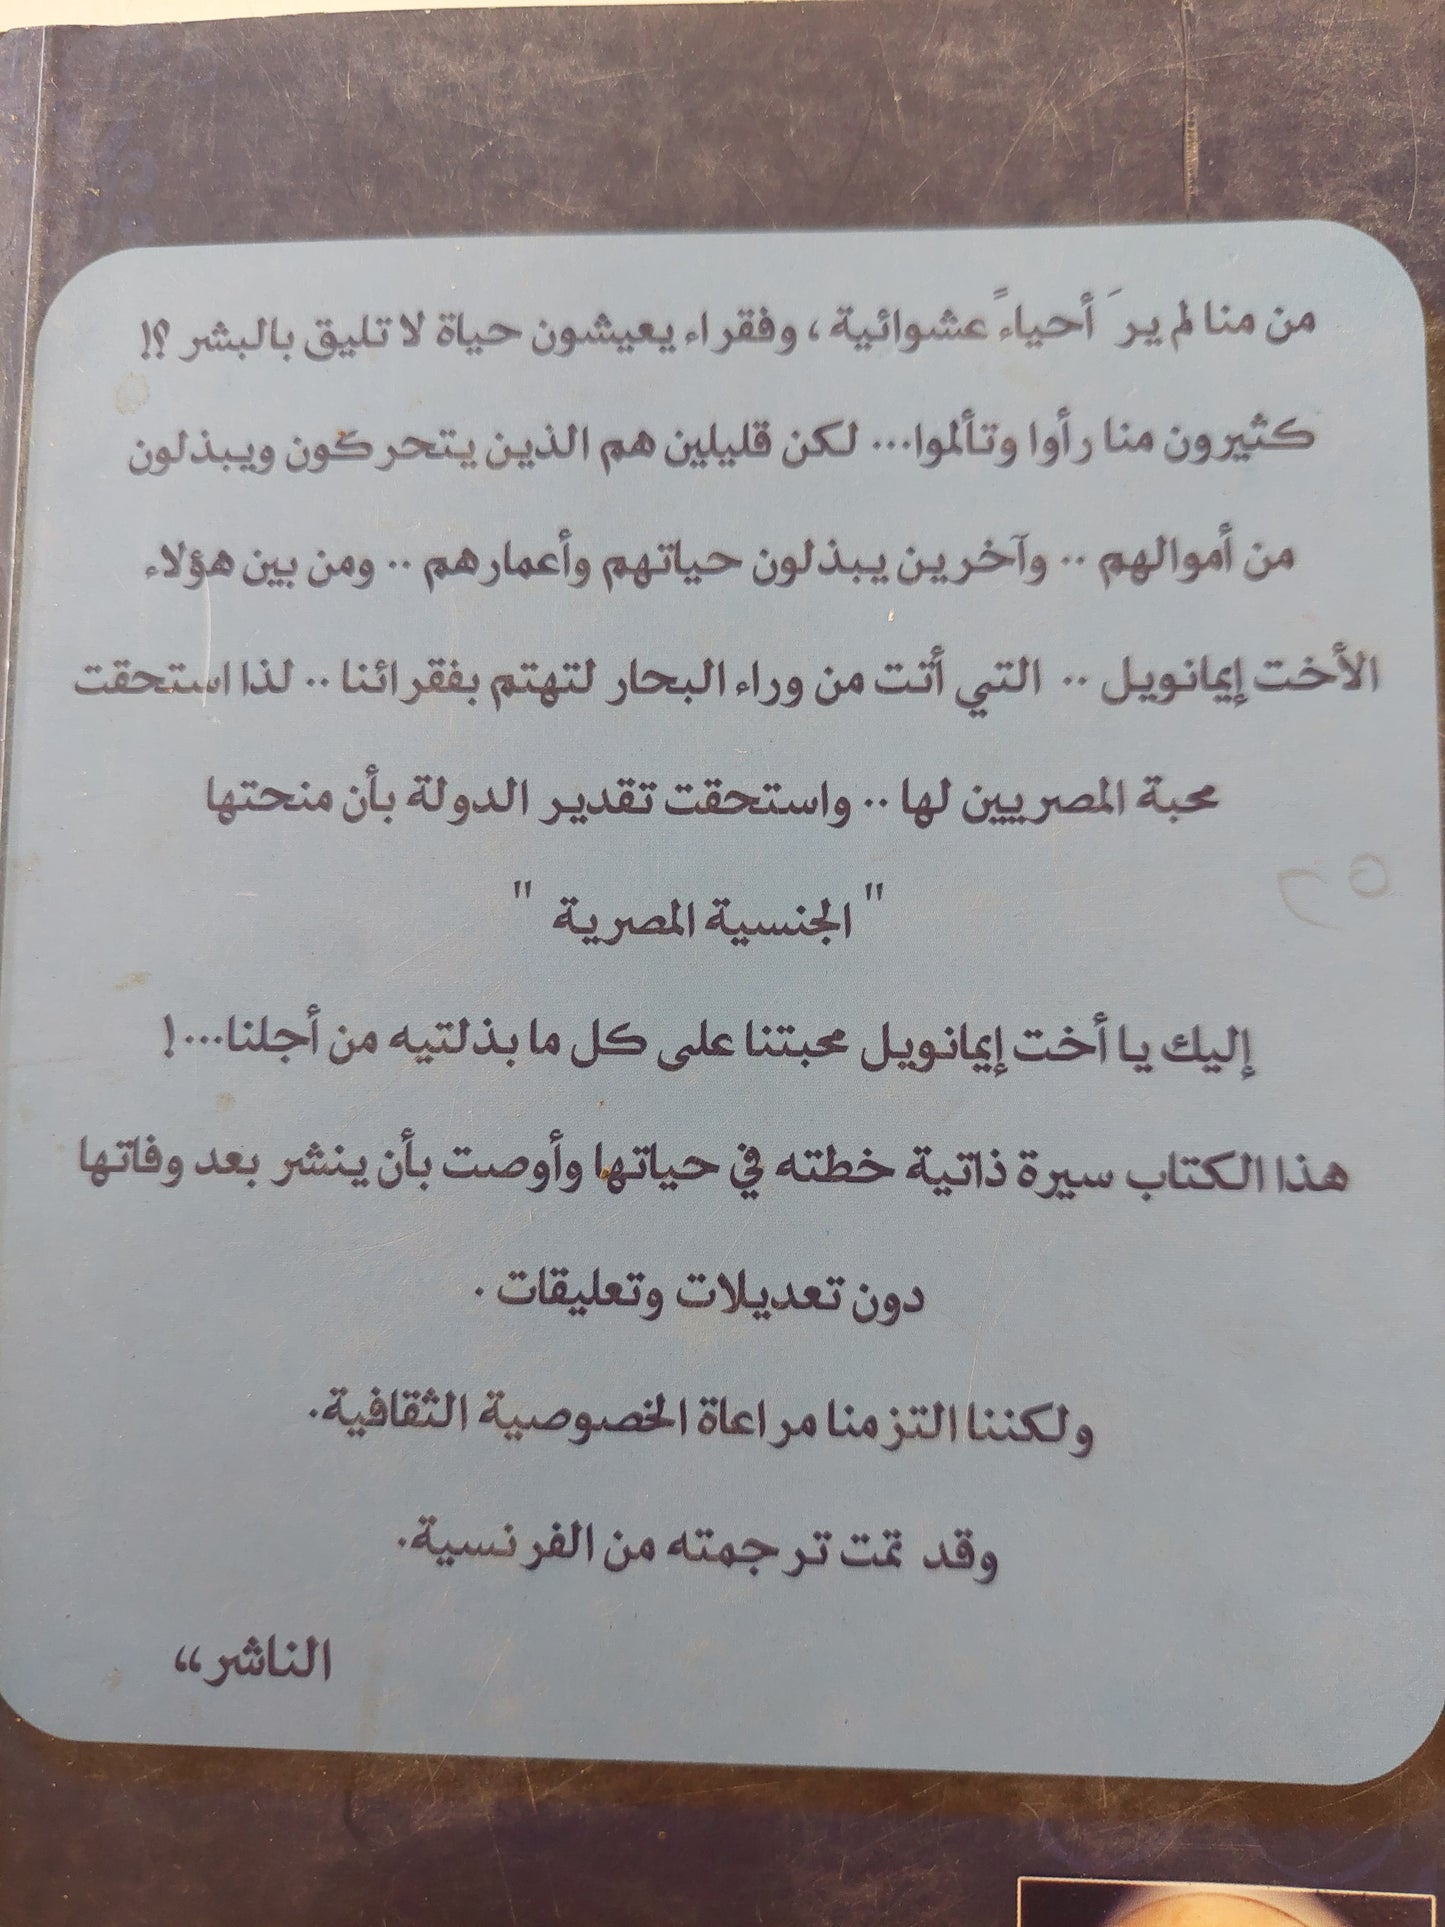 من منا لم يرَ أحياءً عشوائية ، وفقراء يعيشون حياة لا تليق بالبشر ؟!
كثيرون منا رأوا وتألموا... لكن قليلين هم الذين يتحركون ويبذلون
من أموالهم .. وآخرين يبذلون حياتهم وأعمارهم .. ومن بين هؤلاء
الأخت إيمانويل .. التي أتت من وراء البحار لتهتم بفقرائنا .. لذا استحقت
محبة المصريين لها .. واستحقت تقدير الدولة بأن منحتها
" الجنسية المصرية "
إليك يا أخت إيمانويل محبتنا على كل ما بذلتيه من أجلنا...!
هذا الكتاب سيرة ذاتية خطته في حياتها وأوصت بأن ينشر بعد وفاتها
دون تعديلات وتعليقات .
ولكننا التزمنا مراعاة الخصوصية الثقافية.
وقد تمت ترجمته من الفرنسية.
الناشر،،